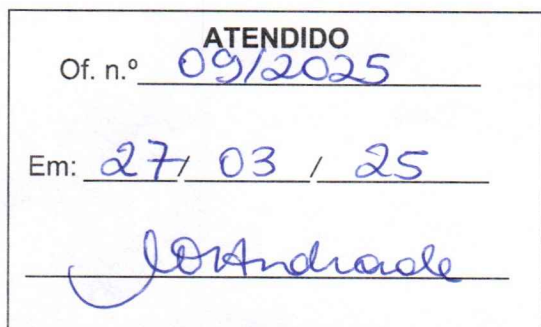 ATENDIDO
Of. n.º 09/2025
Em: 27/ 03 / 25
Andrade